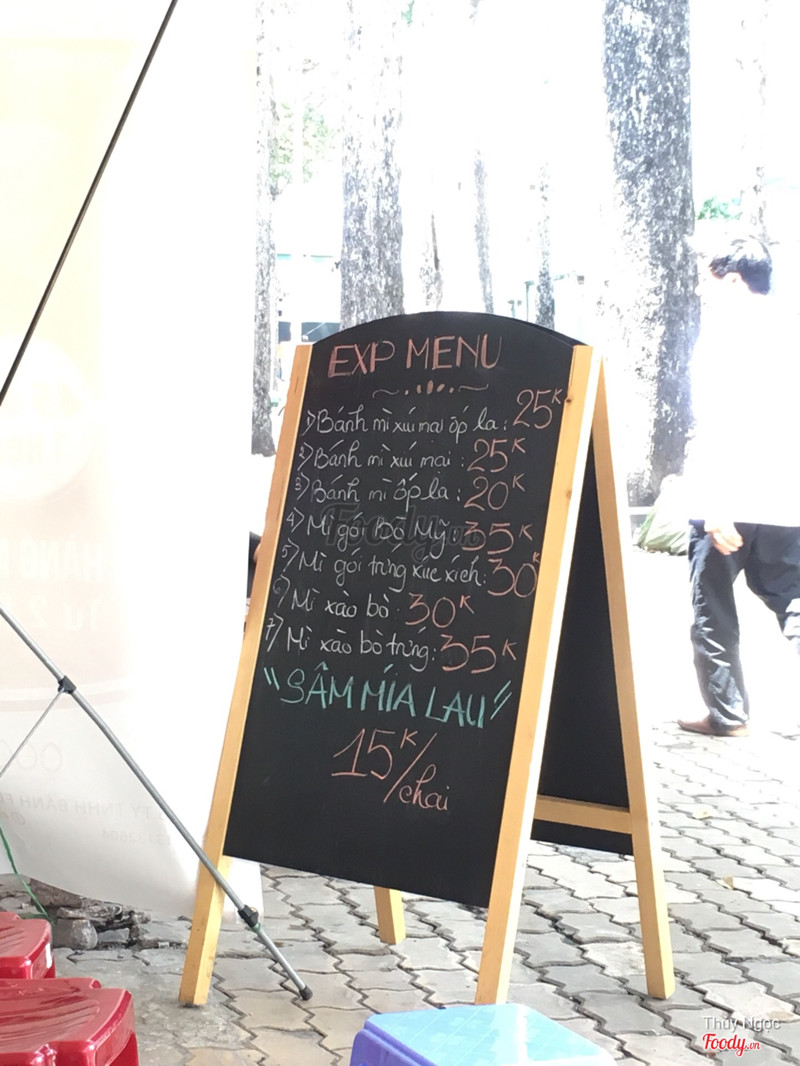 EXP MENU
1) Bánh mì xíu mại ốp la: 25K
2) Bánh mì xíu mại: 25K
3) Bánh mì ốp la: 20K
4) Mì gói Bò Mỹ 35K
5) Mì gói trứng xúc xích: 30K
6) Mì xào bò: 30K
7) Mì xào bò trứng: 35K
"SÂM MÍA LAU"
15K/chai
Foody.vn
Thúy Ngọc
Foody.vn